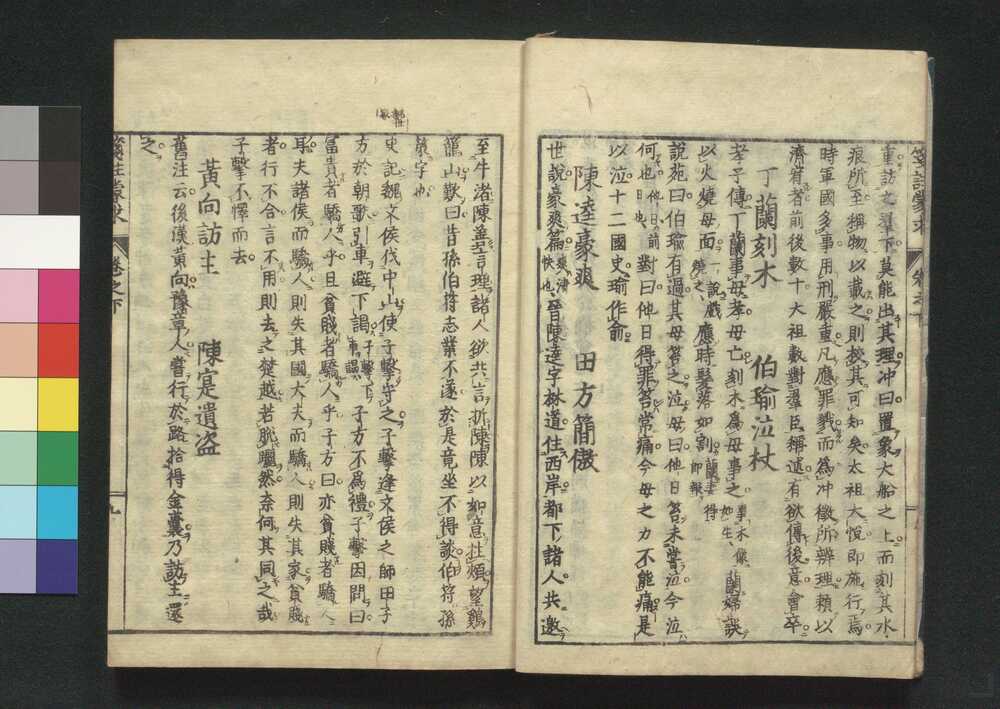 重訪之羣下莫能出其理冲曰置象大船之上而刻其水
痕所至稱物以載之則挍其可知矣太祖大悦即施行焉
時軍國多事用刑嚴重凡應罪戮而為冲微所辨理頼以
濟宥者前後數十大祖數對羣臣稱述有欲傳後意會卒
丁蘭刻木 伯瑜泣杖
孝子傳丁蘭事母孝母亡刻木為母事之事木像如生蘭婦誤
以火燒母面一說戲燒之應時髮落如割蘭妻得即報
說苑曰伯瑜有過其母笞之泣母曰他日笞未嘗泣今泣
何也他日前日也對曰他日得罪笞常痛今母之力不能痛是
以泣十二國史瑜作俞
陳逵豪爽 田方簡傲
世說豪爽篇爽清快也晉陳逵字林道住西岸都下諸人共邀
至牛渚陳善言理諸人欲共言折陳陳以如意拄頬望鷄
籠山歎曰昔孫伯符志業不遂於是竟坐不得談伯符孫
策字也
史記魏文侯伐中山使子擊守之子擊逢文侯之師田子
方於朝歌引車避下謁子擊下車謁子方不為禮子擊因問曰
富貴者驕人乎且貧賤者驕人乎子方曰亦貧賤者驕人
耳夫諸侯而驕人則失其國大夫而驕人則失其家貧賤
者行不合言不用則去之楚越若脱躧然奈何其同之哉
子擊不懌而去
黃向訪主 陳寔遺盗
舊注云後漢黃向豫章人嘗行於路拾得金囊乃訪主還
之
卷之下
九